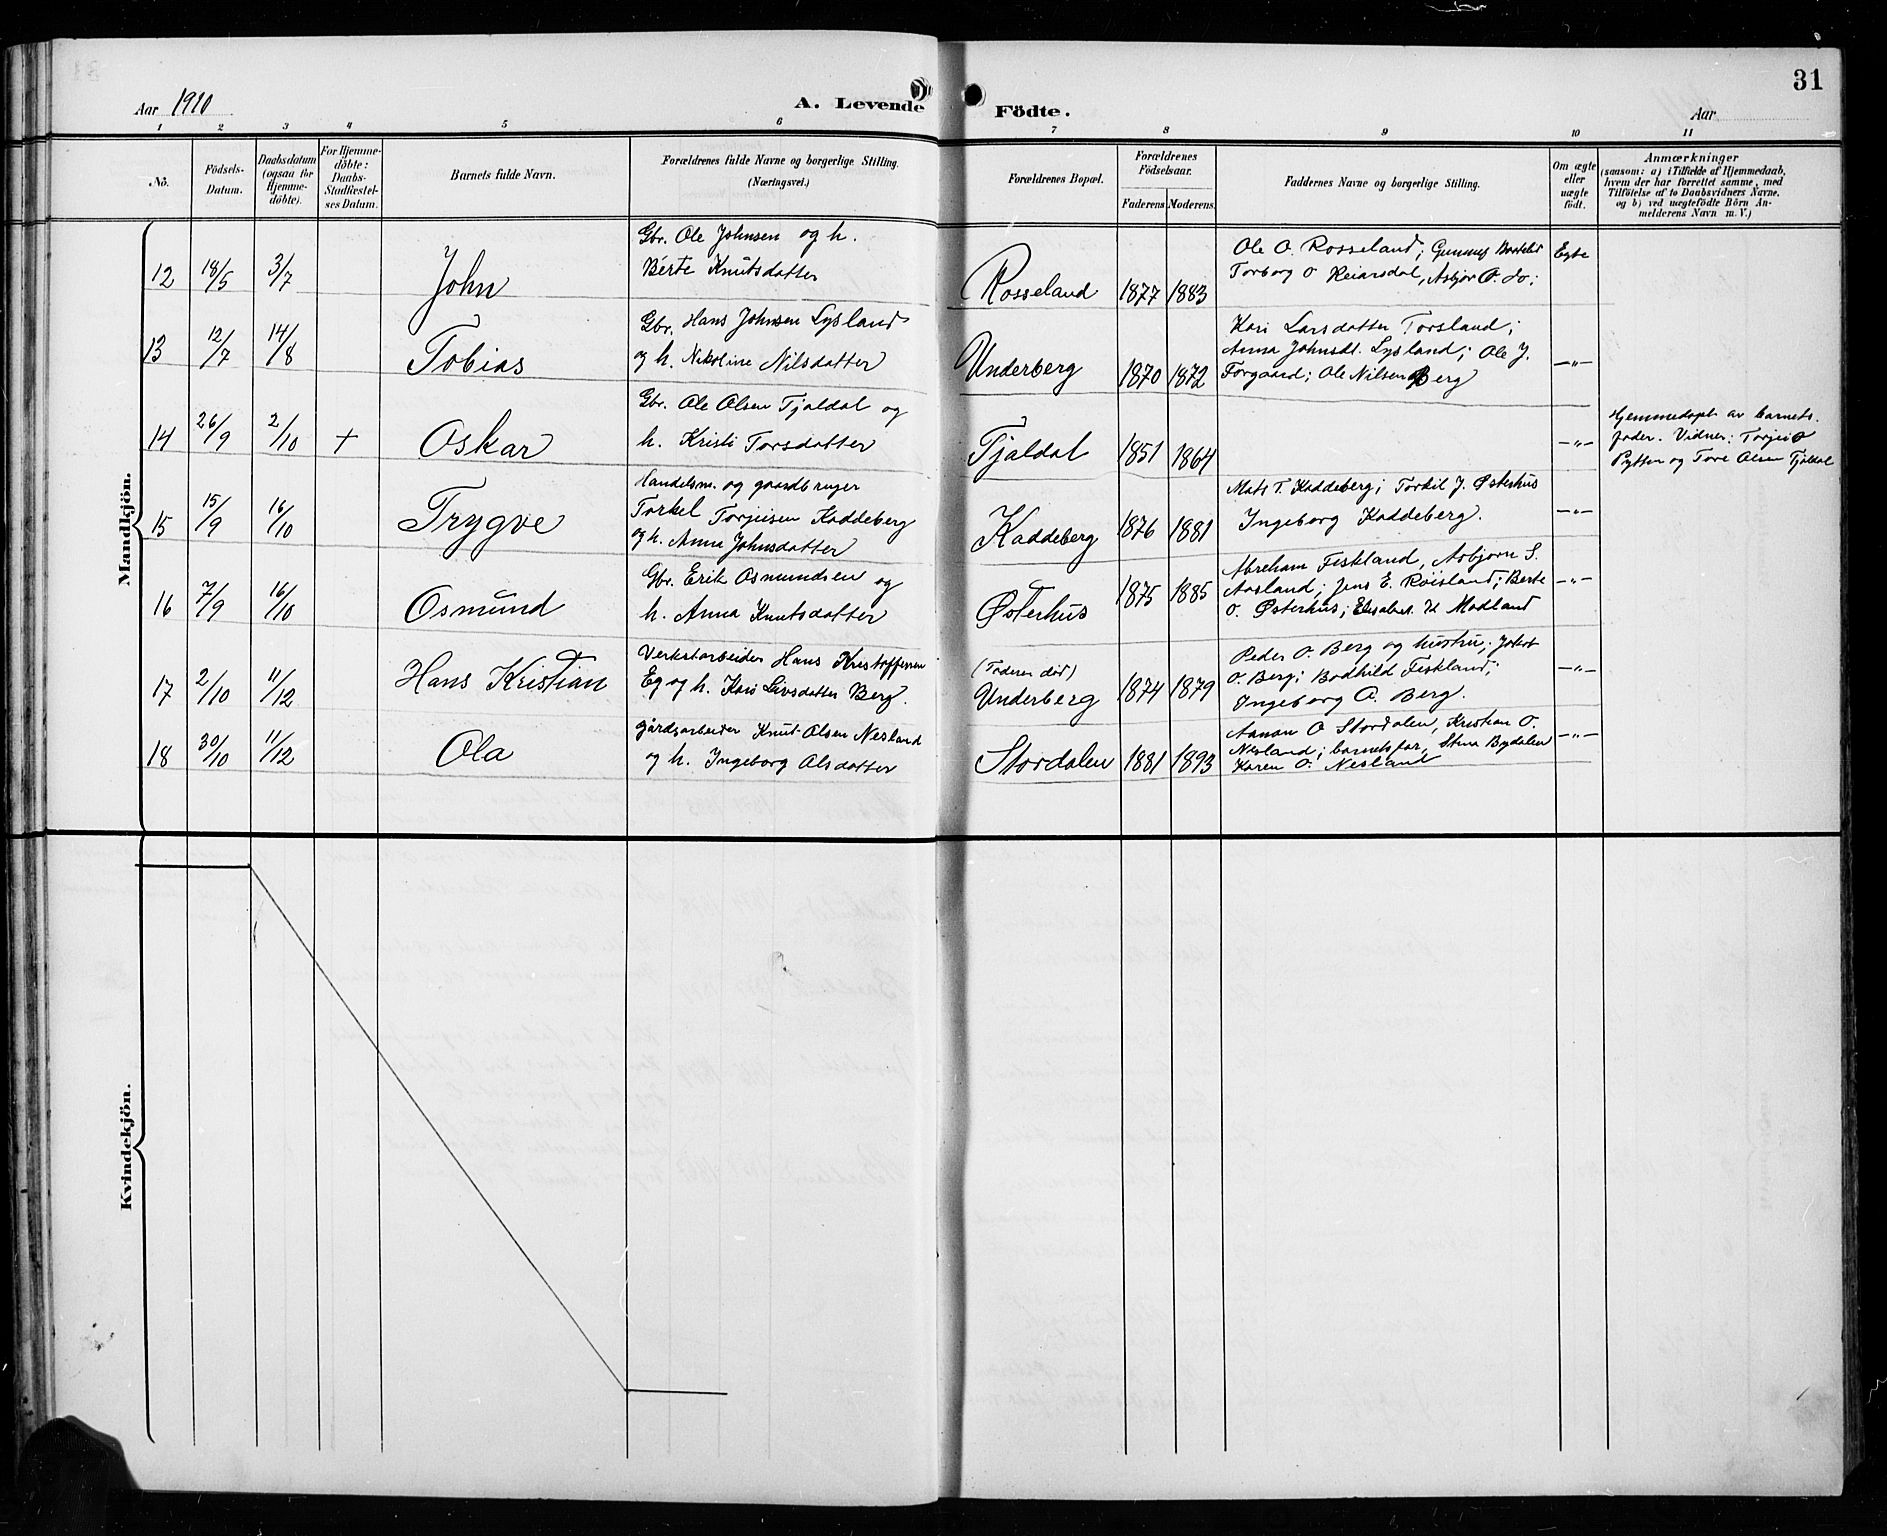 31
Aar 1910
A. Levende Födte.
Aar
1 2 3 4 5 6 7 8 9 10 11
No.
Födsels-Datum.
Daabsdatum (ogsaa for Hjemmedöbte).
For Hjemmedöbte: Daabs-Stadfæstelses Datum.
Barnets fulde Navn.
Forældrenes fulde Navne og borgerlige Stilling. (Næringsvei.)
Forældrenes Bopæl.
Forældrenes Födselsaar.
Faderens Moderens.
Faddernes Navne og borgerlige Stilling.
Om ægte eller uægte födt.
Anmærkninger
(saasom: a) i Tilfælde af Hjemmedaab, hvem der har forrettet samme, med Tilföielse af to Daabsvidners Navne, og b) ved uægtefödte Börn Anmelderens Navn m. V.)
Mandkjön.
12 18/5 3/7 John
Gbr. Ole Johnsen og h.
Berte Knutsdatter
Rosseland 1877 1883
Ole O. Rosseland; Gunnuf
Torborg O Reiarsdal, Asbjør O. do;
Egte
13 12/7 14/8 Tobias
Gbr. Hans Johnsen Lysland
og h. Nikoline Nilsdatter
Underberg 1870 1872
Kari Larsdatter Torsland;
Anna Johnsdt. Lysland; Ole J.
Forgaard; Ole Nilsen Berg
—"—
14 26/9 2/10 + Oskar
Gbr. Ole Olsen Tjaldal og
h. Kristi Torsdatter
Tjaldal 1851 1864
—"—
Hjemmedøpt av barnets
fader. Vidner: Torjus O
Pytten og Tore Olsen Tjaldal
15 15/9 16/10 Trygve
Handelsm. og gaardbruger
Torkel Torjeisen Kaddeberg
og h. Anna Johnsdatter
Kaddeberg 1876 1881
Mats T. Kaddeberg; Torkil J. Østerhus
Ingeborg Kaddeberg.
—"—
16 7/9 16/10 Osmund
Gbr. Erik Osmundsen og
h. Anna Knutsdatter
Østerhus 1875 1885
Abreham Feskland, Asbjørn S.
Aasland; Jens E. Røisland; Berte
O. Østerhus; Elisabet K Modland
—"—
17 2/10 11/12 Hans Kristian
Verkstarbeider Hans Kristoffersen
Eg og h. Kari Livsdatter Berg.
(Faderen død)
Underberg 1874 1879
Peder O. Berg og hustru; Jakob
O. Berg; Bodhild Feskland;
Ingeborg A. Berg.
—"—
18 30/10 11/12 Ola
gårdsarbeider Knut Olsen Nesland
og h. Ingeborg Olsdatter
Stordalen 1881 1893
Aanon O Stordalen, Kristian O.
Nesland; barnets far, Stina Bydalen
Karen O. Nesland
—"—
Kvindekjön.